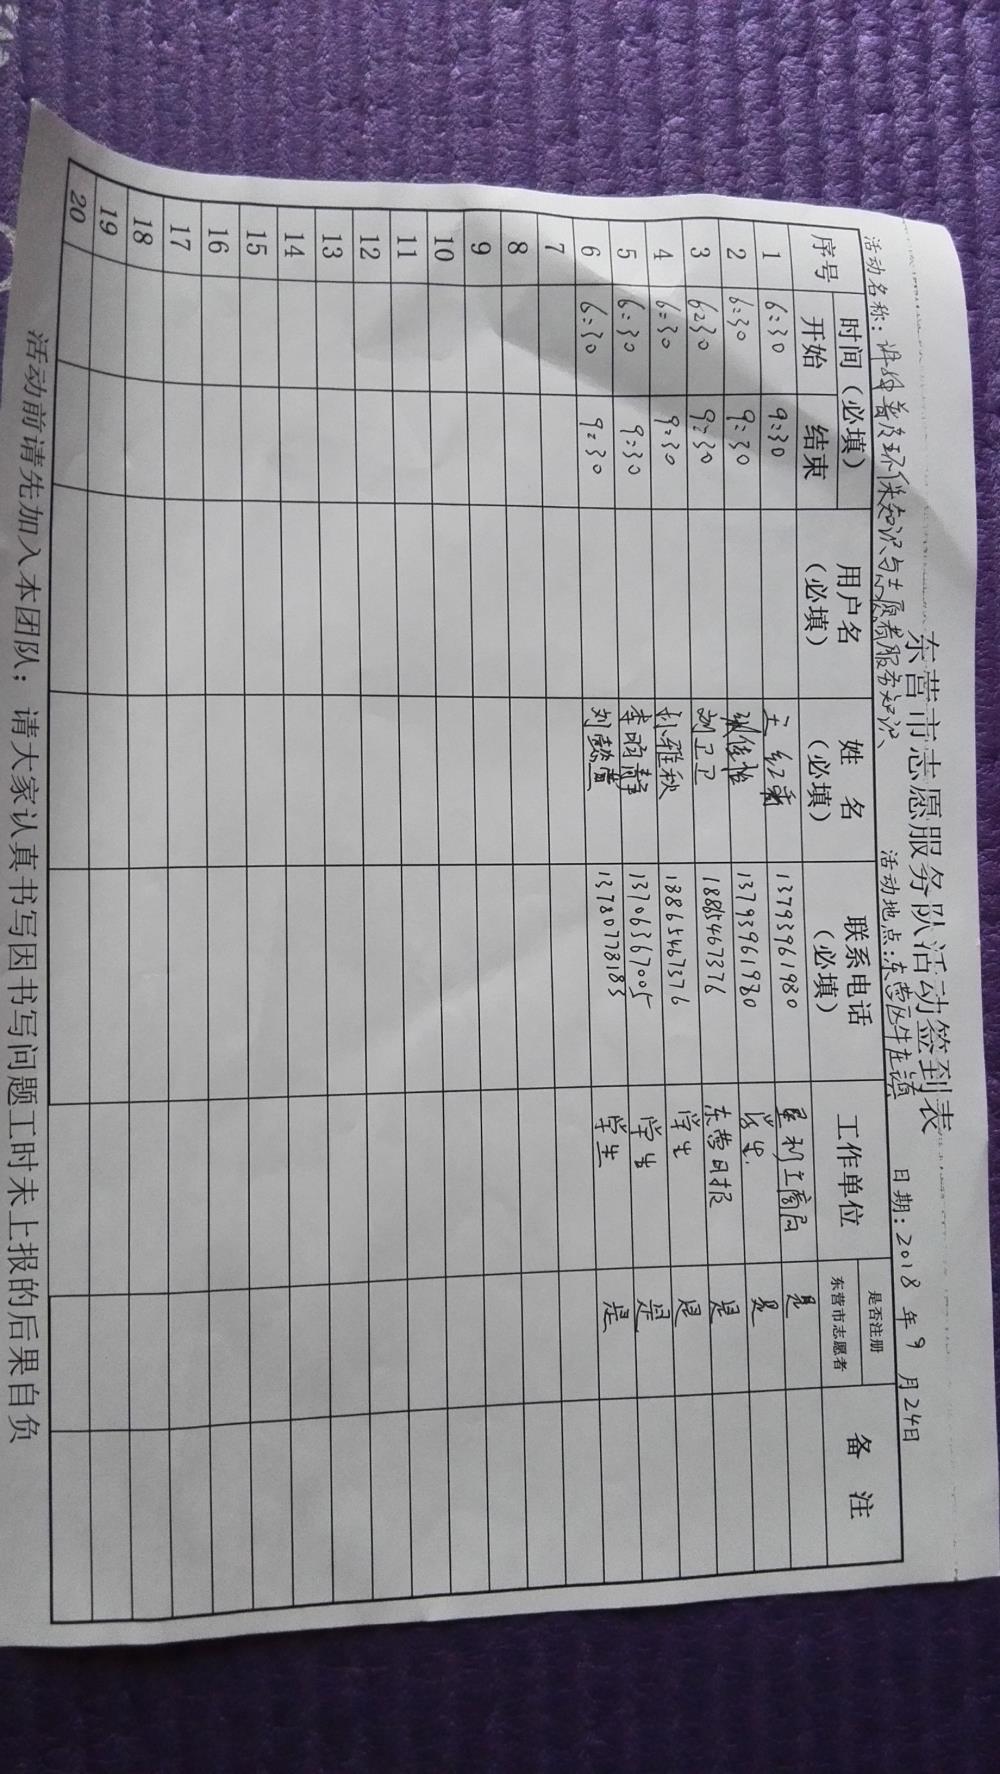 东营市志愿服务队活动签到表
活动名称：讲解普及环保知识与志愿者服务知识、 活动地点：东营区牛庄镇 日期：2018 年 9 月 24日
序号 时间（必填） 用户名（必填） 姓 名（必填） 联系电话（必填） 工作单位 是否注册东营市志愿者 备 注
开始 结束
1 6:30 9:30 王红 13793961980 垦利工商局 是
2 6:30 9:30 张佳怡 13793961980 学生. 是
3 6:30 9:30 刘卫卫 18865467376 东营日报 是
4 6:30 9:30 孙雅秋 18865467376 学生 是
5 6:30 9:30 李明静 13706367005 学生 是
6 6:30 9:30 刘懿萱 13780778183 学生 是
7
8
9
10
11
12
13
14
15
16
17
18
19
20
活动前请先加入本团队；请大家认真书写因书写问题工时未上报的后果自负